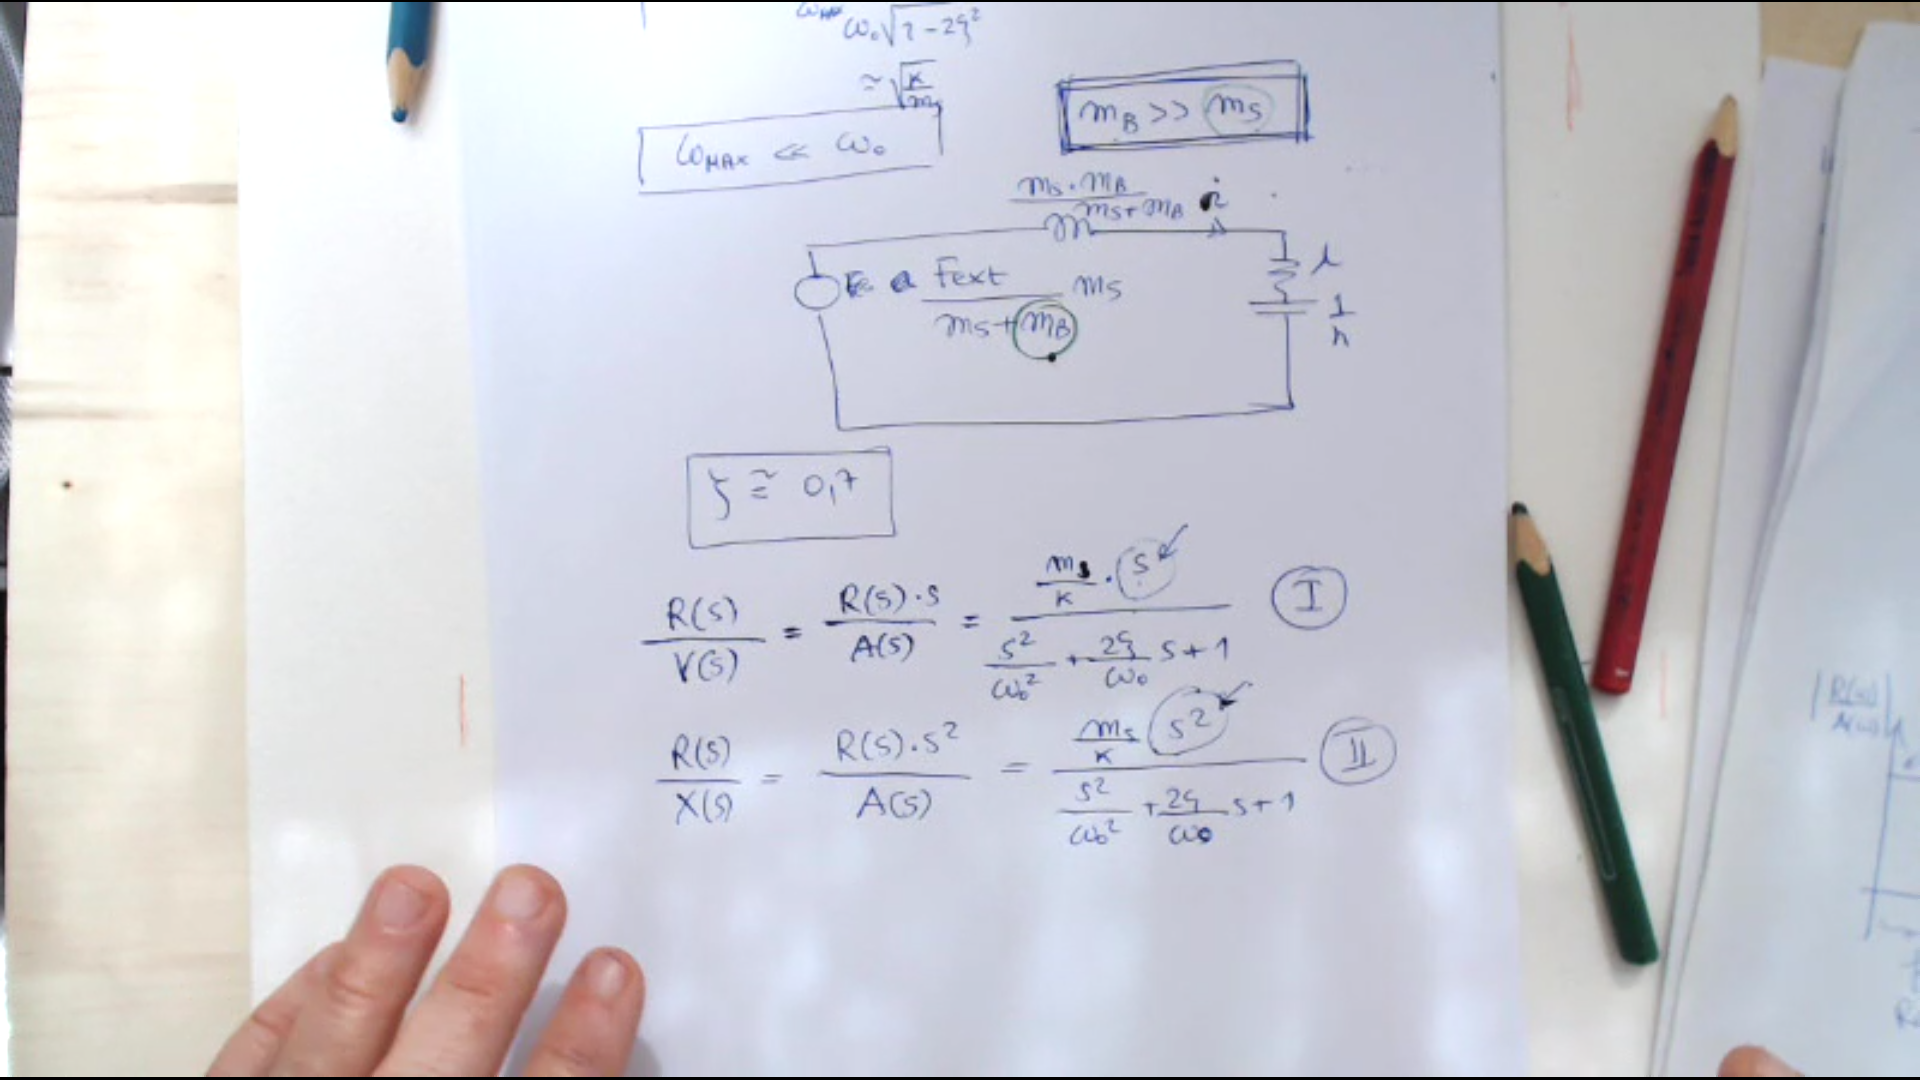 ω₀√1-2ζ²
≃ √K/ms
ωMAX << ω₀
mB >> ms
ms·mB / ms+mB i
Fext / ms+mB ms
1/k
ζ ≅ 0,7
R(s)/V(s) = R(s)·s/A(s) = ms/K · s / s²/ω₀² + 2ζ/ω₀ s+1 I
R(s)/X(s) = R(s)·s²/A(s) = ms/K s² / s²/ω₀² + 2ζ/ω₀ s+1 II